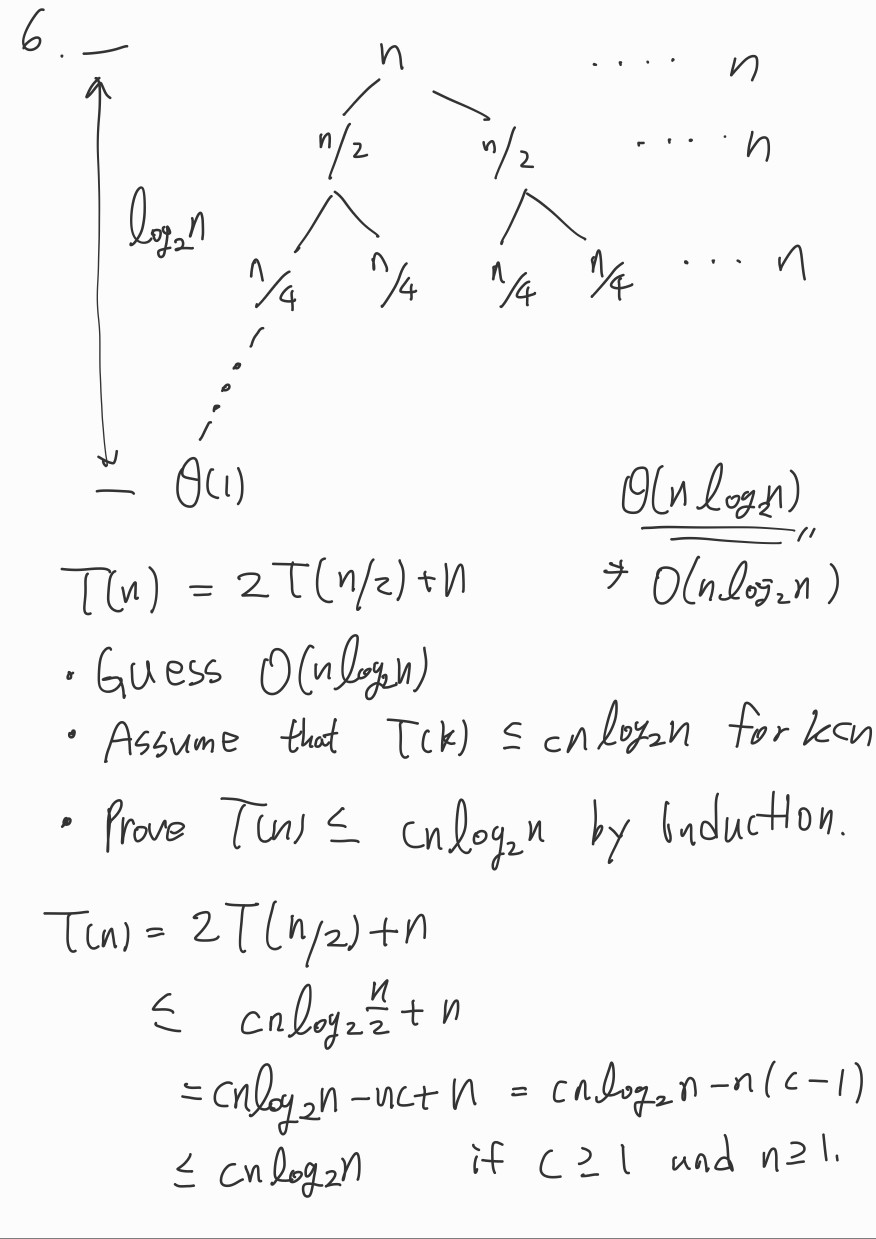 6.
n .... n
n/2 n/2 .... n
log₂n
n/4 n/4 n/4 n/4 ... n
θ(1)
Θ(n log₂n)
→ O(n log₂n)
T(n) = 2T(n/2)+n
· Guess O(n log₂n)
· Assume that T(k) ≤ cn log₂n for k<n
· Prove T(n) ≤ cn log₂n by induction.
T(n) = 2T(n/2)+n
≤ cn log₂ n/2 + n
= cn log₂n - nc + n = cn log₂n - n(c-1)
≤ cn log₂n if c ≥ 1 and n ≥ 1.